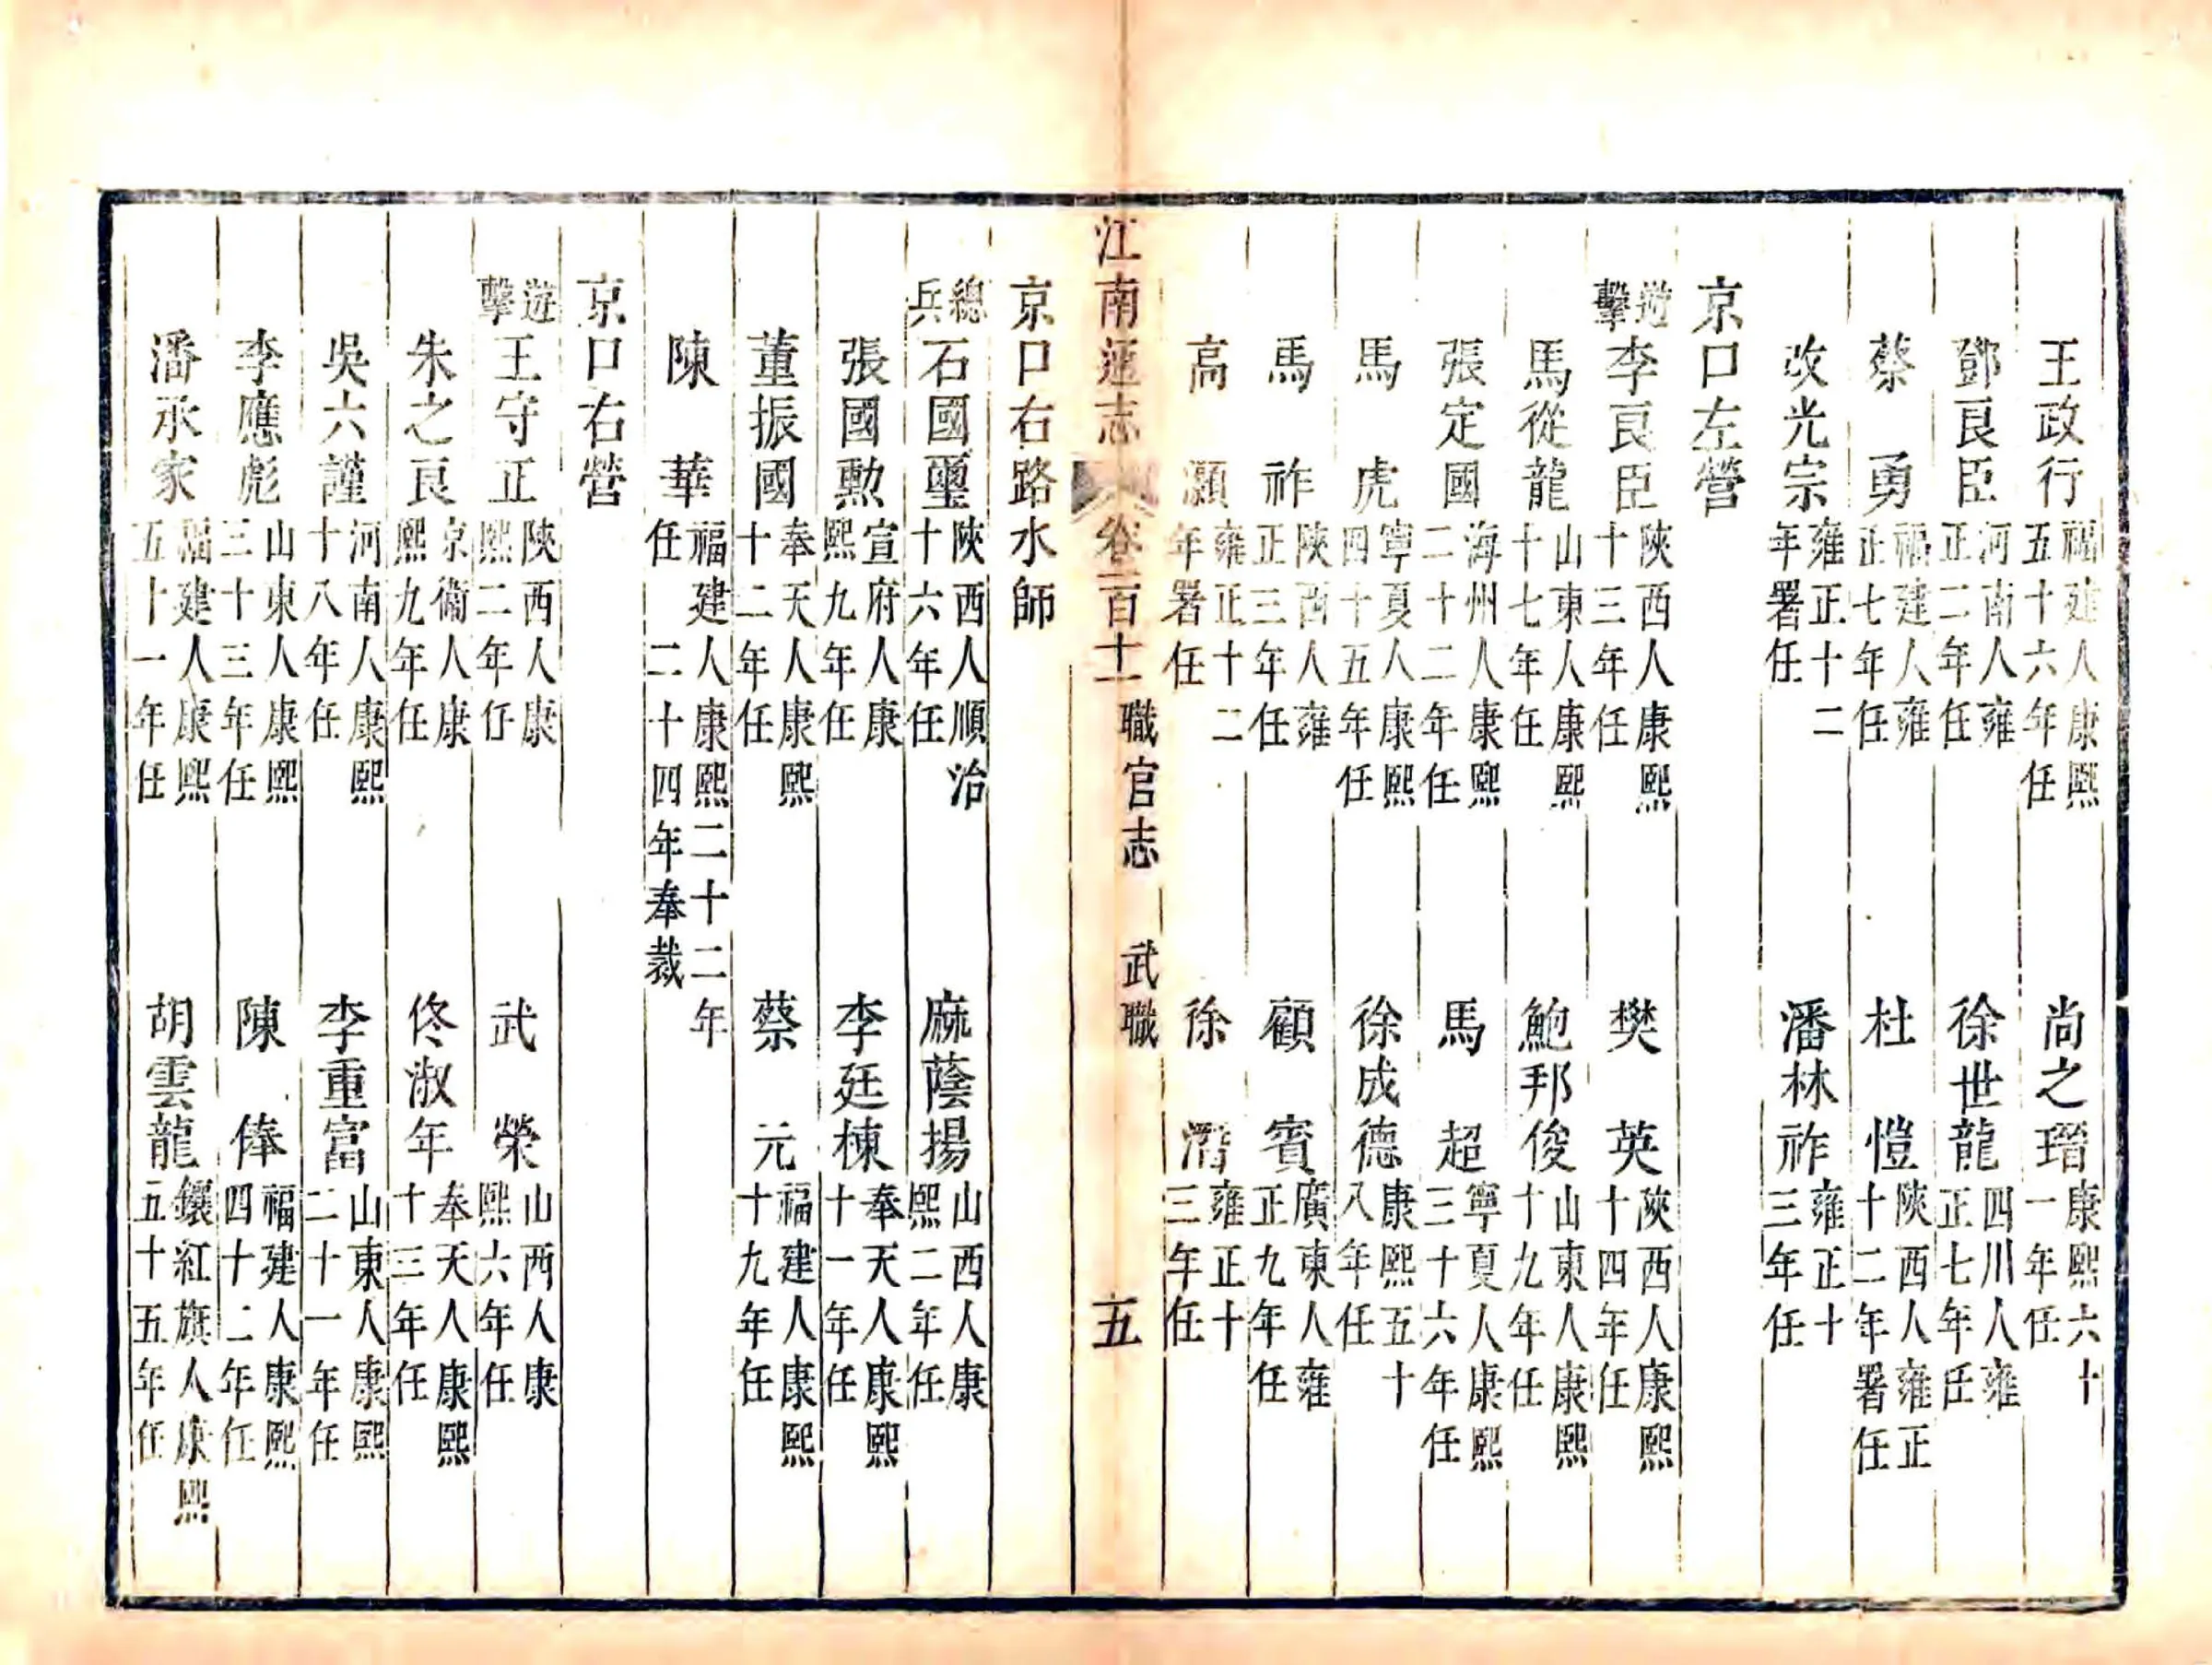 王政行福建人康熙五十六年任　尚之瑨康熙六十一年任
鄧良臣河南人雍正二年任　徐世龍四川人雍正七年任
蔡勇福建人雍正七年任　杜愷陝西人雍正十二年署任
改光宗雍正十二年署任　潘林祚雍正十三年任
京口左營
遊擊李良臣陝西人康熙十三年任　樊英陝西人康熙十四年任
馬從龍山東人康熙十七年任　鮑邦俊山東人康熙十九年任
張定國海州人康熙二十二年任　馬超寧夏人康熙三十六年任
馬虎寧夏人康熙四十五年任　徐成德康熙五十八年任
馬祚陝西人雍正三年任　顧賓廣東人雍正九年任
高灝雍正十二年署任　徐濳雍正十三年任
江南通志　卷一百十一　職官志　武職　五
京口右路水師
總兵石國璽陝西人順治十六年任　麻蔭揚山西人康熙二年任
張國勲宣府人康熙九年任　李廷棟奉天人康熙十一年任
董振國奉天人康熙十二年任　蔡元福建人康熙十九年任
陳華福建人康熙二十二年任二十四年奉裁
京口右營
遊擊王守正陝西人康熙二年任　武榮山西人康熙六年任
朱之良京衞人康熙九年任　佟淑年奉天人康熙十三年任
吳六謹河南人康熙十八年任　李重富山東人康熙二十一年任
李應彪山東人康熙三十三年任　陳俸福建人康熙四十二年任
潘承家福建人康熙五十一年任　胡雲龍鑲紅旗人康熙五十五年任